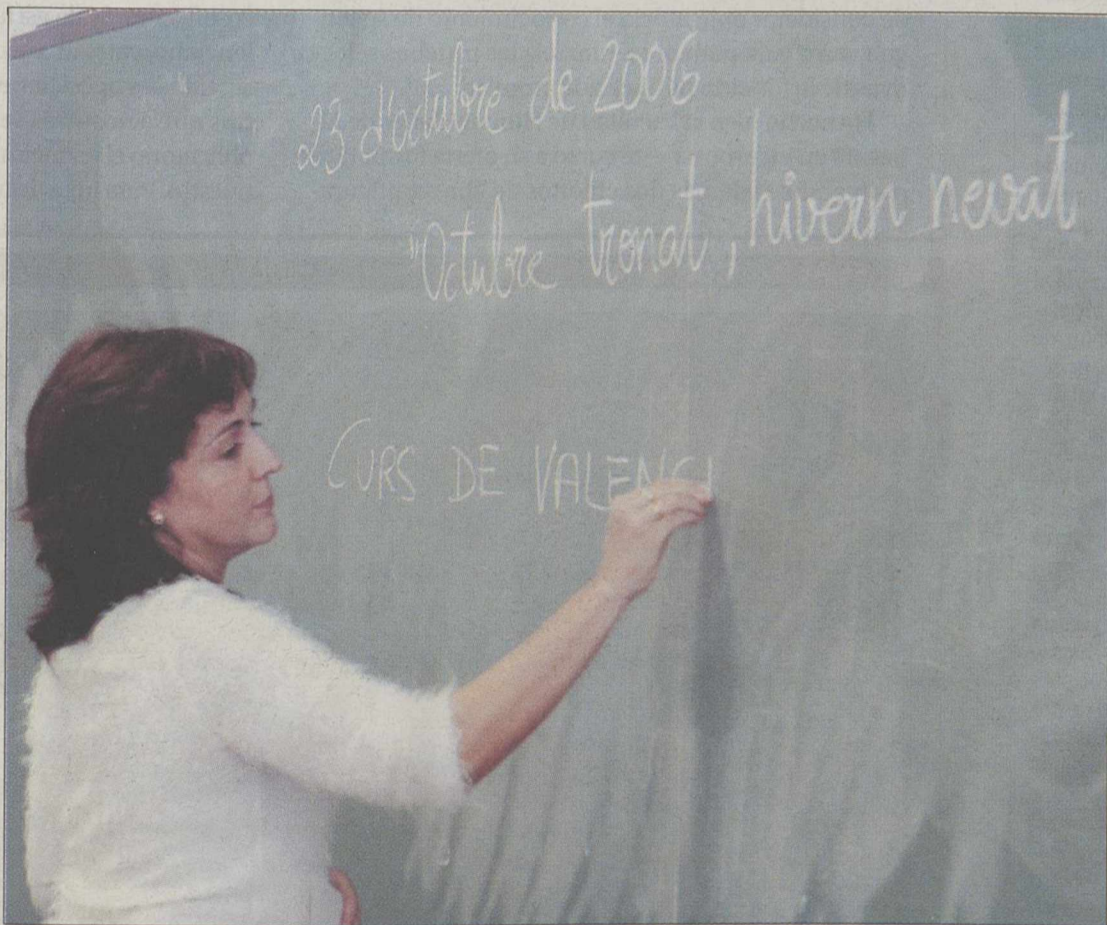 23 d'octubre de 2006
"Octubre tronat, hivern nevat
CURS DE VALENCI